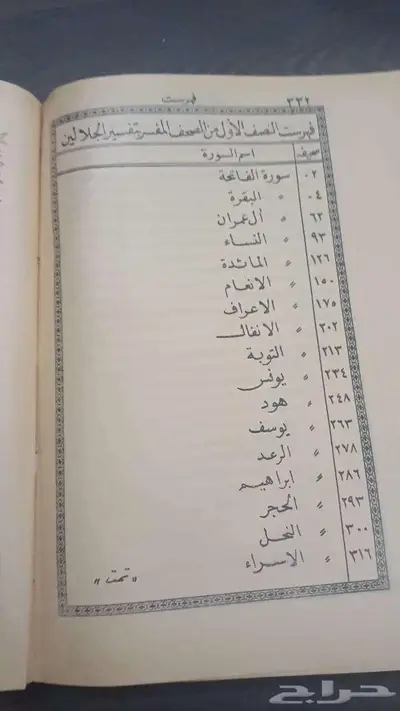 ٣٣٢ فهرست
فهرست النصف الأول من المصحف المفسر بتفسير الجلالين
صحيفة اسم السورة
٠٢ سورة الفاتحة
٠٤ " البقرة
٦٢ " آل عمران
٩٣ " النساء
١٢٦ " المائدة
١٥٠ " الانعام
١٧٥ " الاعراف
٢٠٢ " الانفال
٢١٣ " التوبة
٢٣٤ " يونس
٢٤٨ " هود
٢٦٣ " يوسف
٢٧٨ " الرعد
٢٨٦ " ابراهيم
٢٩٣ " الحجر
٣٠٠ " النحل
٣١٦ " الاسراء
"تمت"
حراج